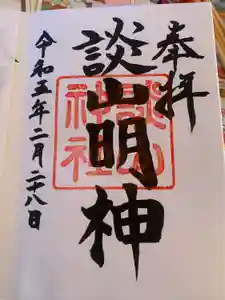 奉拝
談山明神
談山神社
令和五年二月二十八日